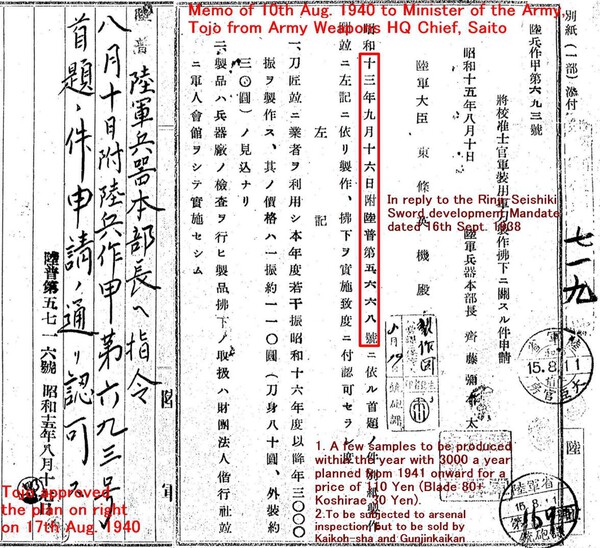 Memo of 10th Aug. 1940 to Minister of the Army,
Tojo from Army Weapons HQ Chief, Saito
別紙(一部)添付
七一九
陸軍省
15.8.11
陸兵作甲第六九三號
將校准士官軍裝用軍刀製作拂下ニ關スル件申請
昭和十五年八月十日
陸軍兵器本部長 齊藤彌
太
陸軍大臣 東條英機殿
In reply to the Rinji Seishiki
Sword development Mandate
dated 16th Sept. 1938
昭和十三年九月十六日附陸普第五六六八號ニ依ル首題ノ件別紙製作
圖竝ニ左記ニ依リ製作、拂下ヲ實施致度ニ付認可セラレ度
左記
一、刀匠竝ニ業者ヲ利用シ本年度若干振昭和十六年度以降年三〇〇〇
振ヲ製作ス、其ノ價格ハ一振約一一〇圓(刀身八十圓、外裝約
三〇圓)ノ見込ナリ
二、製品ハ兵器廠ノ檢査ヲ行ヒ製品拂下ノ取扱ハ財團法人偕行社竝
ニ軍人會館ヲシテ實施セシム
1. A few samples to be produced
within the year with 3000 a year
planned from 1941 onward for a
price of 110 Yen (Blade 80+
Koshirae 30 Yen).
2.To be subjected to arsenal
inspection but to be sold by
Kaikoh-sha and Gunjinkaikan
陸軍
陸普
陸軍兵器本部長ヘ指令
八月十日附陸兵作甲第六九三號
首題ノ件申請ノ通リ認可ス
陸普第五七一六號 昭和十五年八月十
Tojo approved
the plan on right
on 17th Aug. 1940